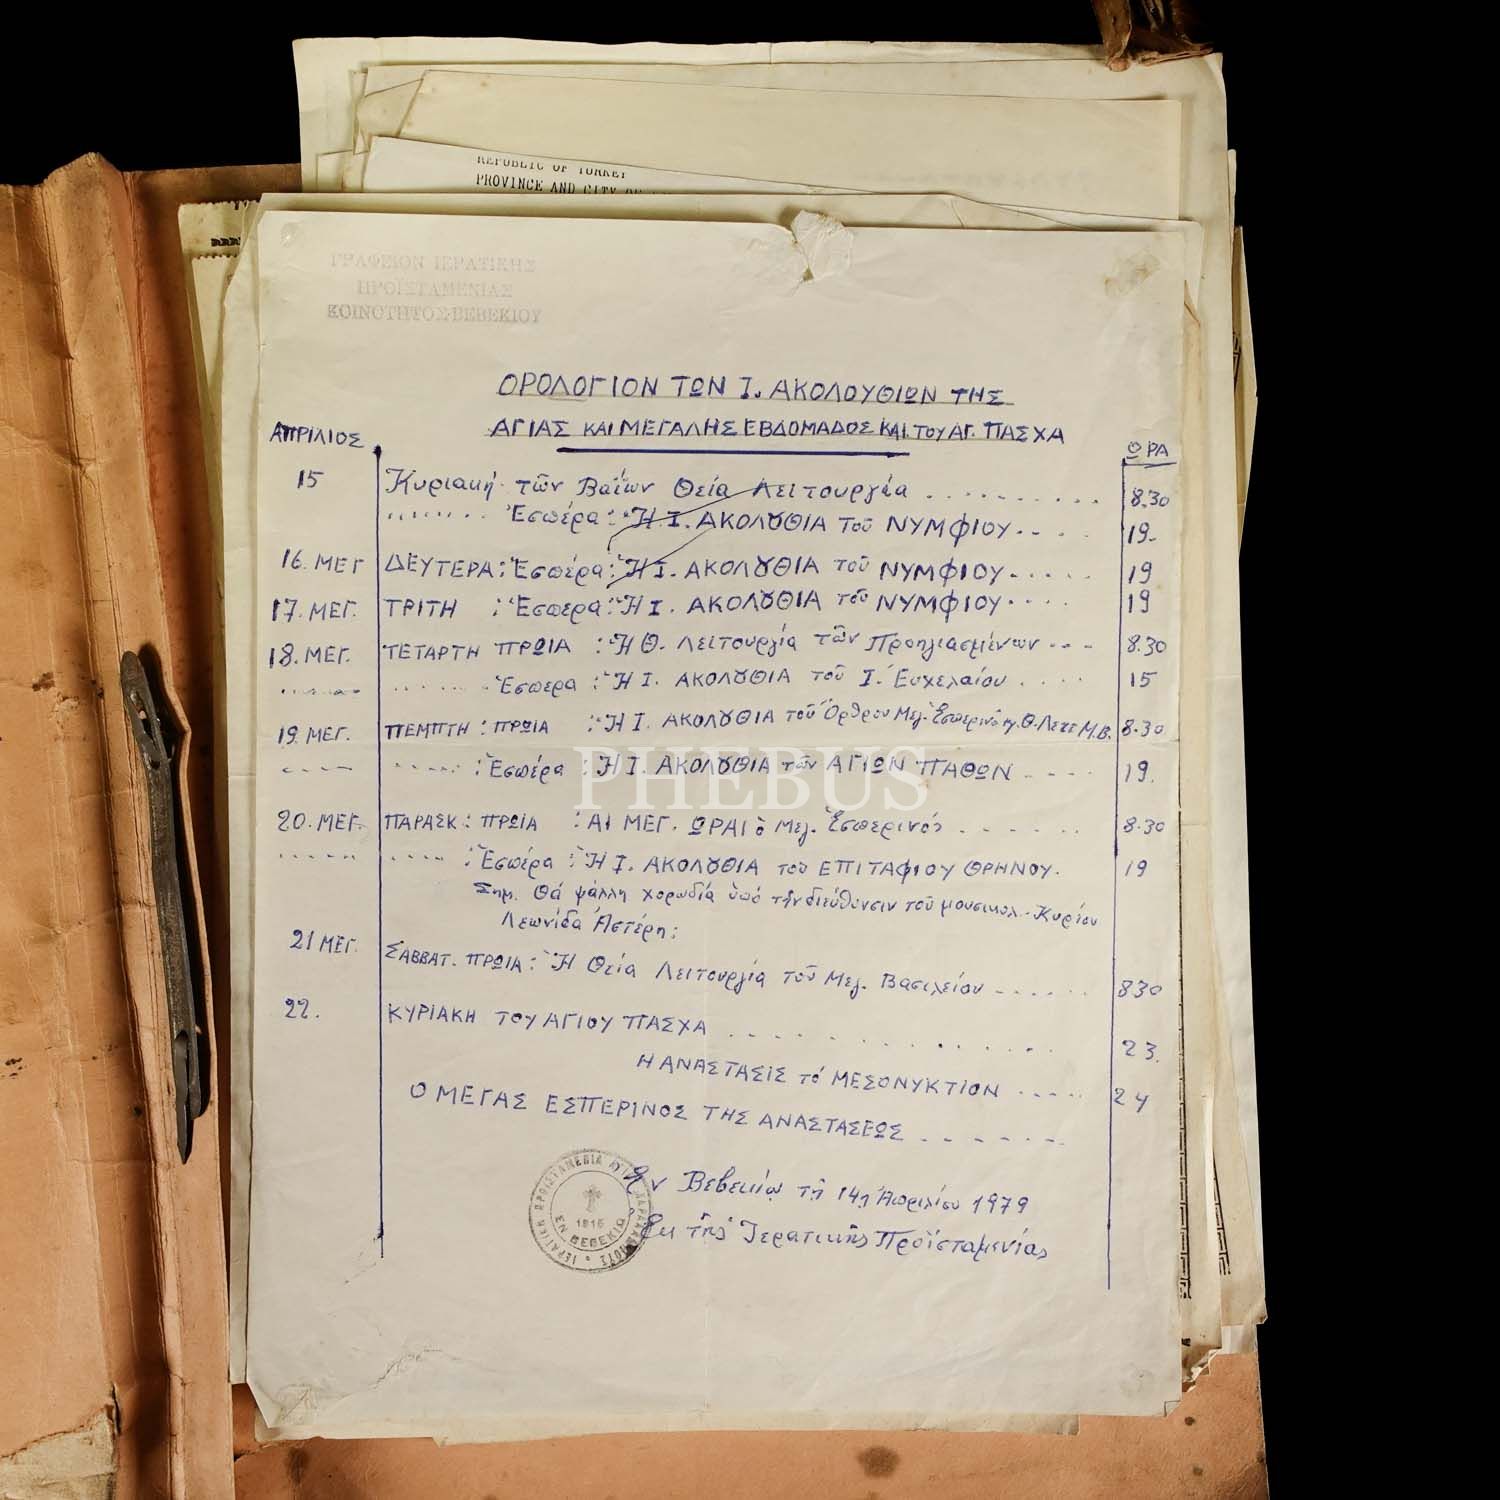 REPUBLIC OF TURKEY
PROVINCE AND CITY OF
ΓΡΑΦΕΙΟΝ ΙΕΡΑΤΙΚΗΣ
ΠΡΟΪΣΤΑΜΕΝΙΑΣ
ΚΟΙΝΟΤΗΤΟΣ ΒΕΒΕΚΙΟΥ
ΟΡΟΛΟΓΙΟΝ ΤΩΝ Ι. ΑΚΟΛΟΥΘΙΩΝ ΤΗΣ
ΑΓΙΑΣ ΚΑΙ ΜΕΓΑΛΗΣ ΕΒΔΟΜΑΔΟΣ ΚΑΙ ΤΟΥ ΑΓ. ΠΑΣΧΑ
ΑΠΡΙΛΙΟΣ ΩΡΑ
15 Κυριακή τῶν Βαΐων Θεία Λειτουργία .......... 8.30
........ Ἑσπέρα: Ἡ Ι. ΑΚΟΛΟΥΘΙΑ Τοῦ ΝΥΜΦΙΟΥ.... 19.
16. ΜΕΓ ΔΕΥΤΕΡΑ: Ἑσπέρα: Ἡ Ι. ΑΚΟΛΟΥΘΙΑ τοῦ ΝΥΜΦΙΟΥ..... 19
17. ΜΕΓ. ΤΡΙΤΗ : Ἑσπέρα: Ἡ Ι. ΑΚΟΛΟΥΘΙΑ τοῦ ΝΥΜΦΙΟΥ.... 19
18. ΜΕΓ. ΤΕΤΑΡΤΗ ΠΡΩΙΑ : Ἡ Θ. Λειτουργία τῶν Προηγιασμένων --- 8.30
....... ....... Ἑσπέρα : Ἡ Ι. ΑΚΟΛΟΥΘΙΑ τοῦ Ι. Εὐχελαίου .... 15
19. ΜΕΓ. ΠΕΜΠΤΗ : ΠΡΩΙΑ : Ἡ Ι. ΑΚΟΛΟΥΘΙΑ τοῦ Ὄρθρου Μεγ. Ἑσπερινὸς Θ. Λειτ Μ.Β. 8.30
----- ..... : Ἑσπέρα : Ἡ Ι. ΑΚΟΛΟΥΘΙΑ τῶν ΑΓΙΩΝ ΠΑΘΩΝ ---- 19.
20. ΜΕΓ. ΠΑΡΑΣΚ : ΠΡΩΙΑ : ΑΙ ΜΕΓ. ΩΡΑΙ ὁ Μεγ. Ἑσπερινός ...... 8.30
------ ---- : Ἑσπέρα : Ἡ Ι. ΑΚΟΛΟΥΘΙΑ τοῦ ΕΠΙΤΑΦΙΟΥ ΘΡΗΝΟΥ. 19
Σημ. Θά ψάλλη χορωδία ὑπό τήν διεύθυνσιν τοῦ μουσικολ. Κυρίου
Λεωνίδα Ἀστέρη:
21 ΜΕΓ. ΣΑΒΒΑΤ. ΠΡΩΙΑ : Ἡ Θεία Λειτουργία τοῦ Μεγ. Βασιλείου ...... 830
22. ΚΥΡΙΑΚΗ ΤΟΥ ΑΓΙΟΥ ΠΑΣΧΑ ............ 23.
Η ΑΝΑΣΤΑΣΙΣ τό ΜΕΣΟΝΥΚΤΙΟΝ ..... 24
Ο ΜΕΓΑΣ ΕΣΠΕΡΙΝΟΣ ΤΗΣ ΑΝΑΣΤΑΣΕΩΣ .......
Ἐν Βεβεκίῳ τῇ 14ῃ Ἀπριλίου 1979
Ἐκ τῆς Ἱερατικῆς Προϊσταμενίας
ΙΕΡΑΤΙΚΗ ΠΡΟΪΣΤΑΜΕΝΙΑ ΑΓΙΟΥ ΧΑΡΑΛΑΜΠΟΥΣ
1916
ΕΝ ΒΕΒΕΚΙΩ
PHEBUS